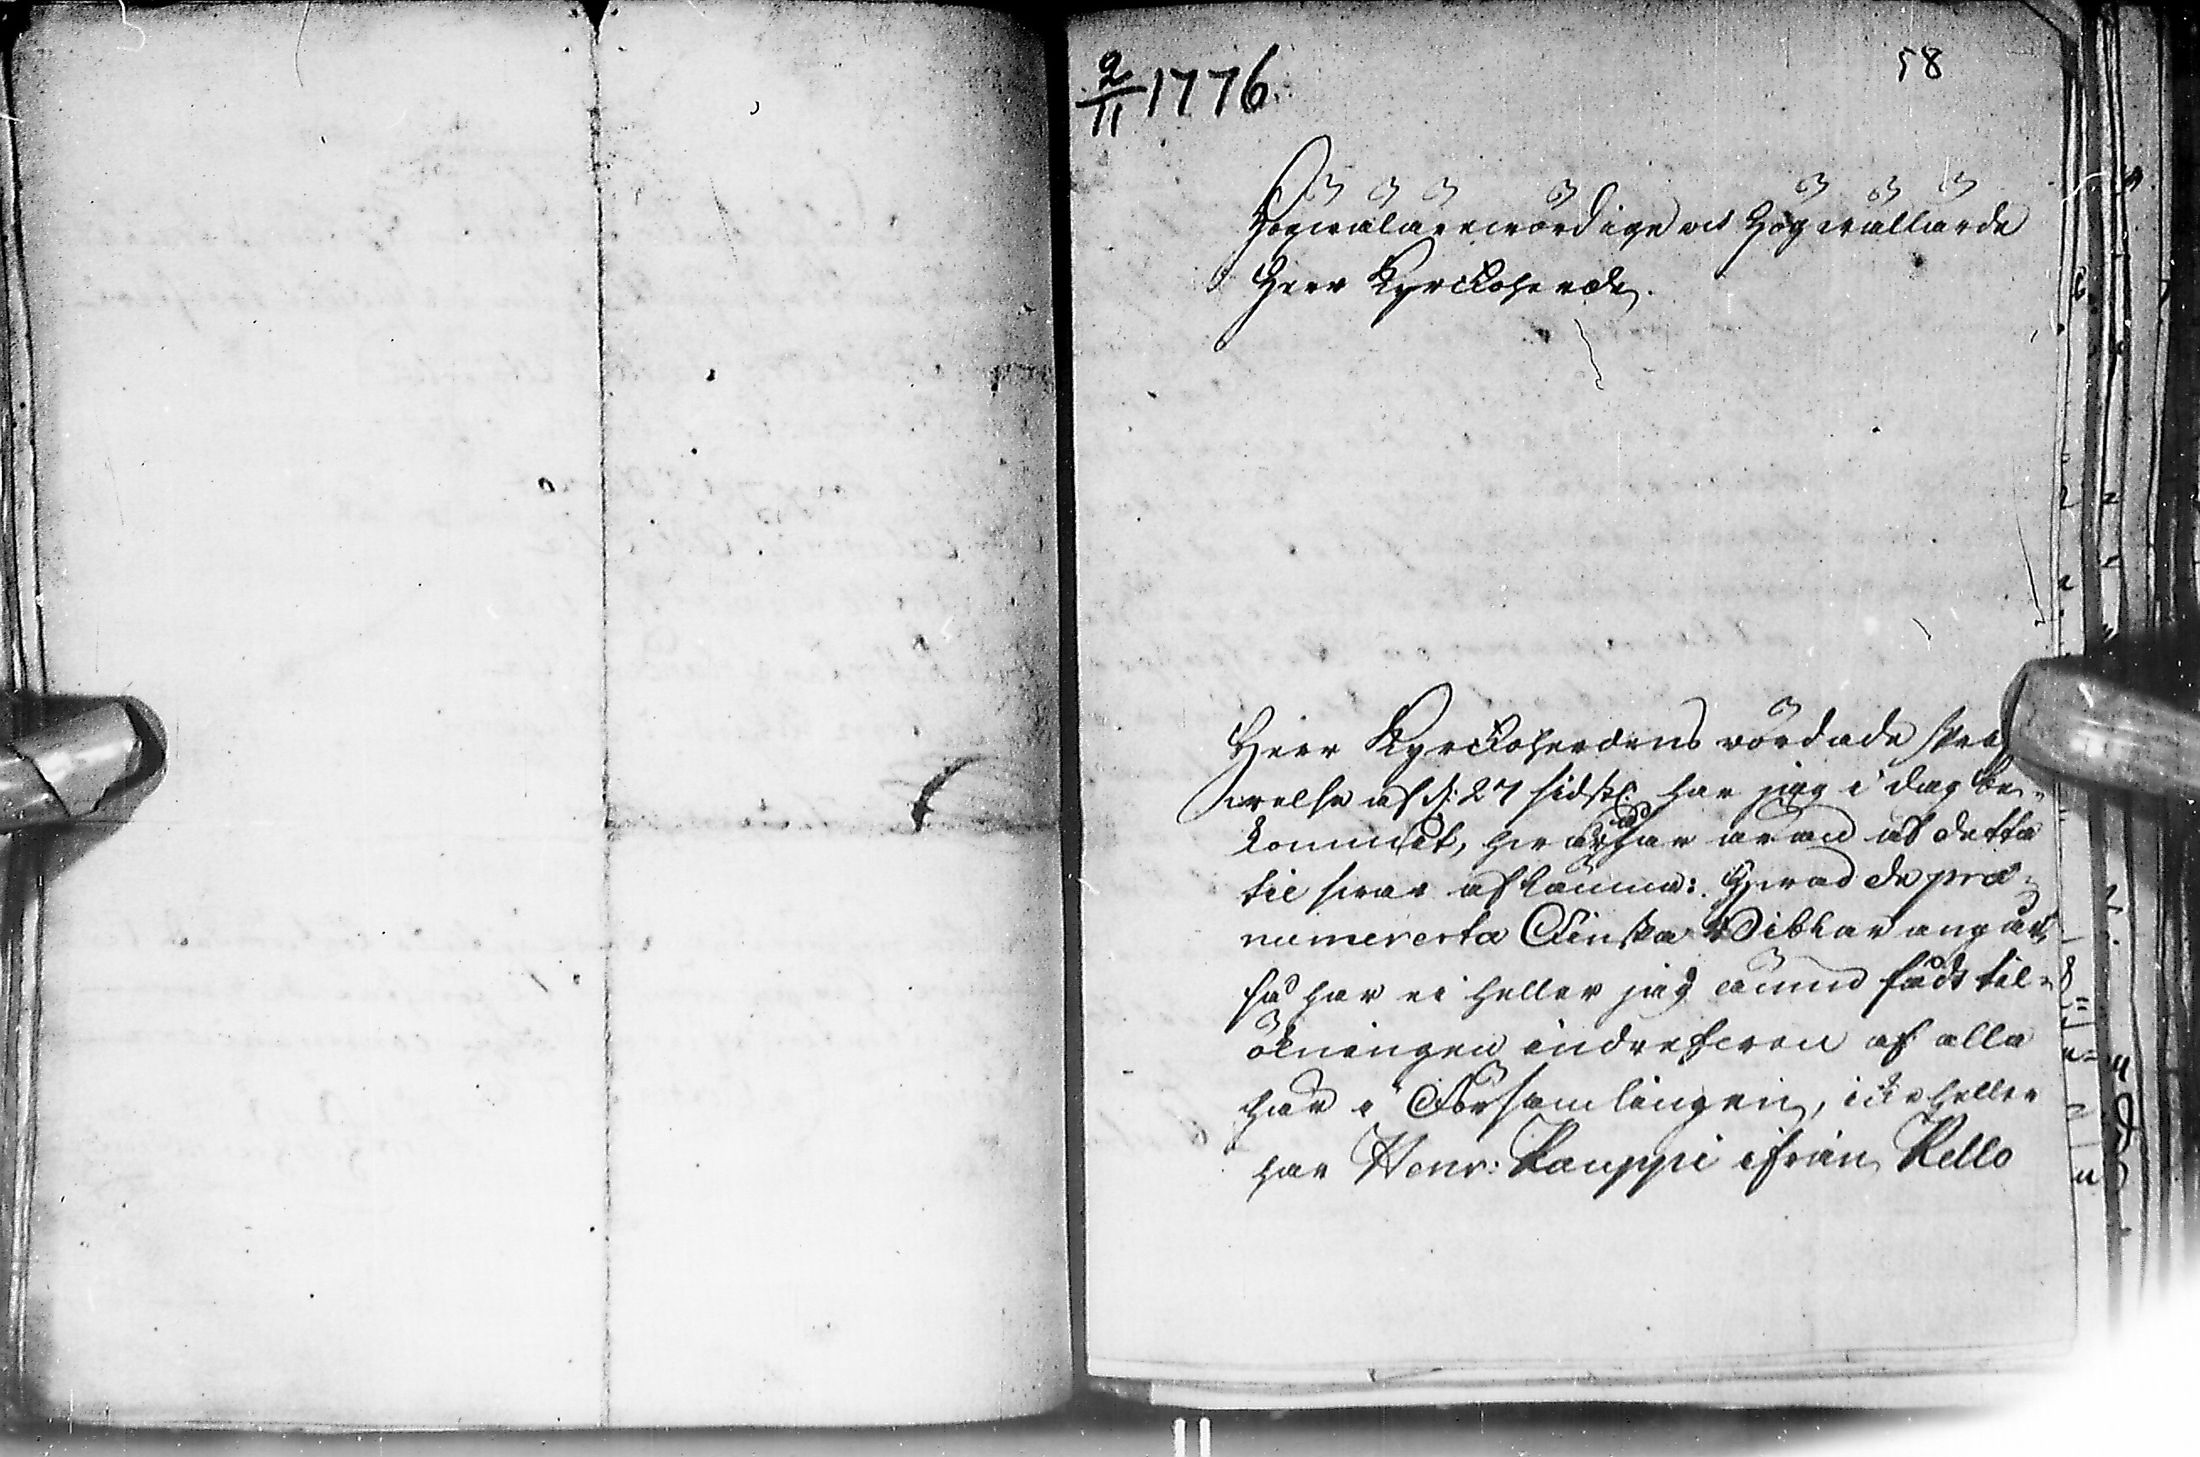 2/11 1776.
58
Högwälärewördige och Höglärde
Herr Kyrckoherde.
Herr Kyrckoherdens wördade skrif
welse af d: 27 sidstl: har jag i dag be-
kommit, hwarpå har äran at detta
til swar aflämna: Hwad de præ-
numererta Finska Biblar angår,
så har ei heller jag ännu fådt til-
ökningen indrefwen af alla
här i Församlingen, icke heller
har Henr: Kauppi ifrån Kello